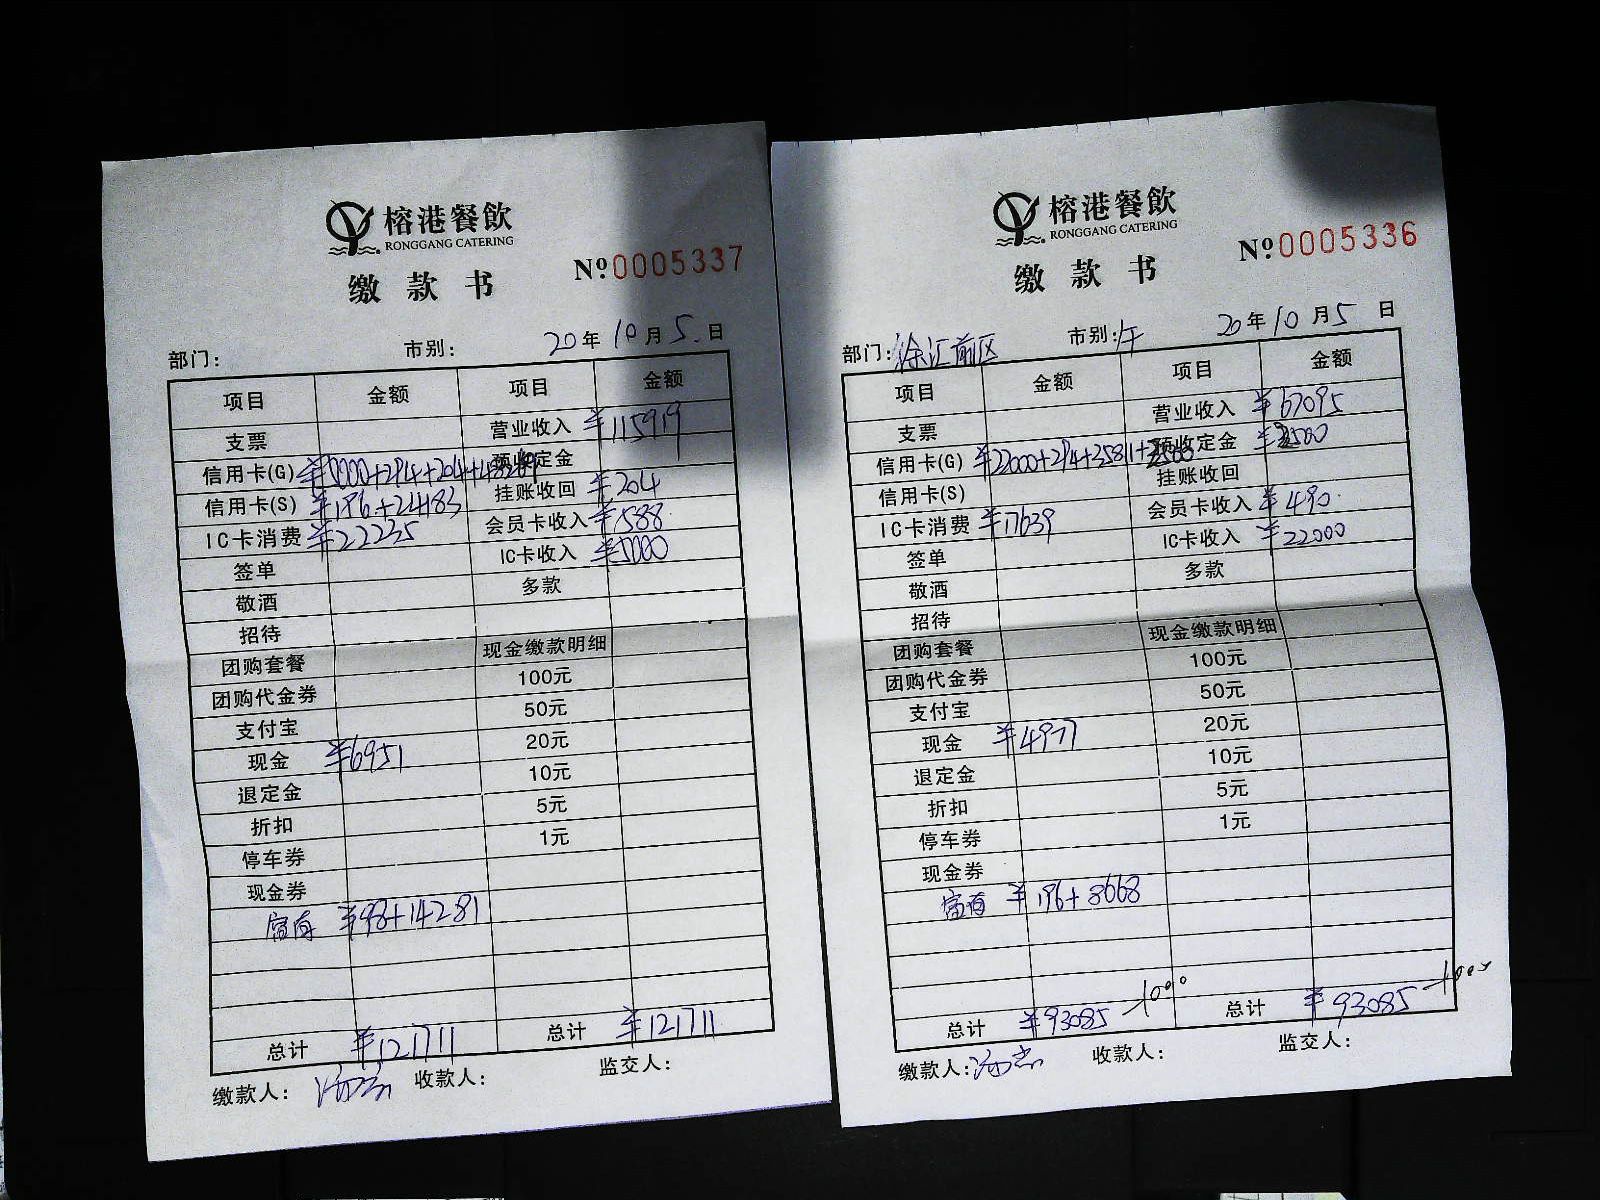 榕港餐飲
RONGGANG CATERING
缴款书
№0005337
部门: 市别: 20年10月5日
项目 金额 项目 金额
支票 营业收入 ¥115919
信用卡(G) 预收定金
信用卡(S) ¥196+24183 挂账收回 ¥204
IC卡消费 ¥22235 会员卡收入 ¥588
签单 IC卡收入 ¥5000
敬酒 多款
招待
团购套餐 现金缴款明细
团购代金券 100元
支付宝 50元
现金 ¥6951 20元
退定金 10元
折扣 5元
停车券 1元
现金券
¥98+14281
总计 ¥121711 总计 ¥121711
缴款人: 收款人: 监交人:
榕港餐飲
RONGGANG CATERING
缴款书
№0005336
部门:徐汇前区 市别:午 20年10月5日
项目 金额 项目 金额
支票 营业收入 ¥67095
信用卡(G) 预收定金
信用卡(S) 挂账收回
IC卡消费 ¥17639 会员卡收入 ¥490
签单 IC卡收入 ¥22000
敬酒 多款
招待
团购套餐 现金缴款明细
团购代金券 100元
支付宝 50元
现金 ¥4977 20元
退定金 10元
折扣 5元
停车券 1元
现金券
¥196+8668
总计 ¥93085 总计 ¥93085
缴款人: 收款人: 监交人: